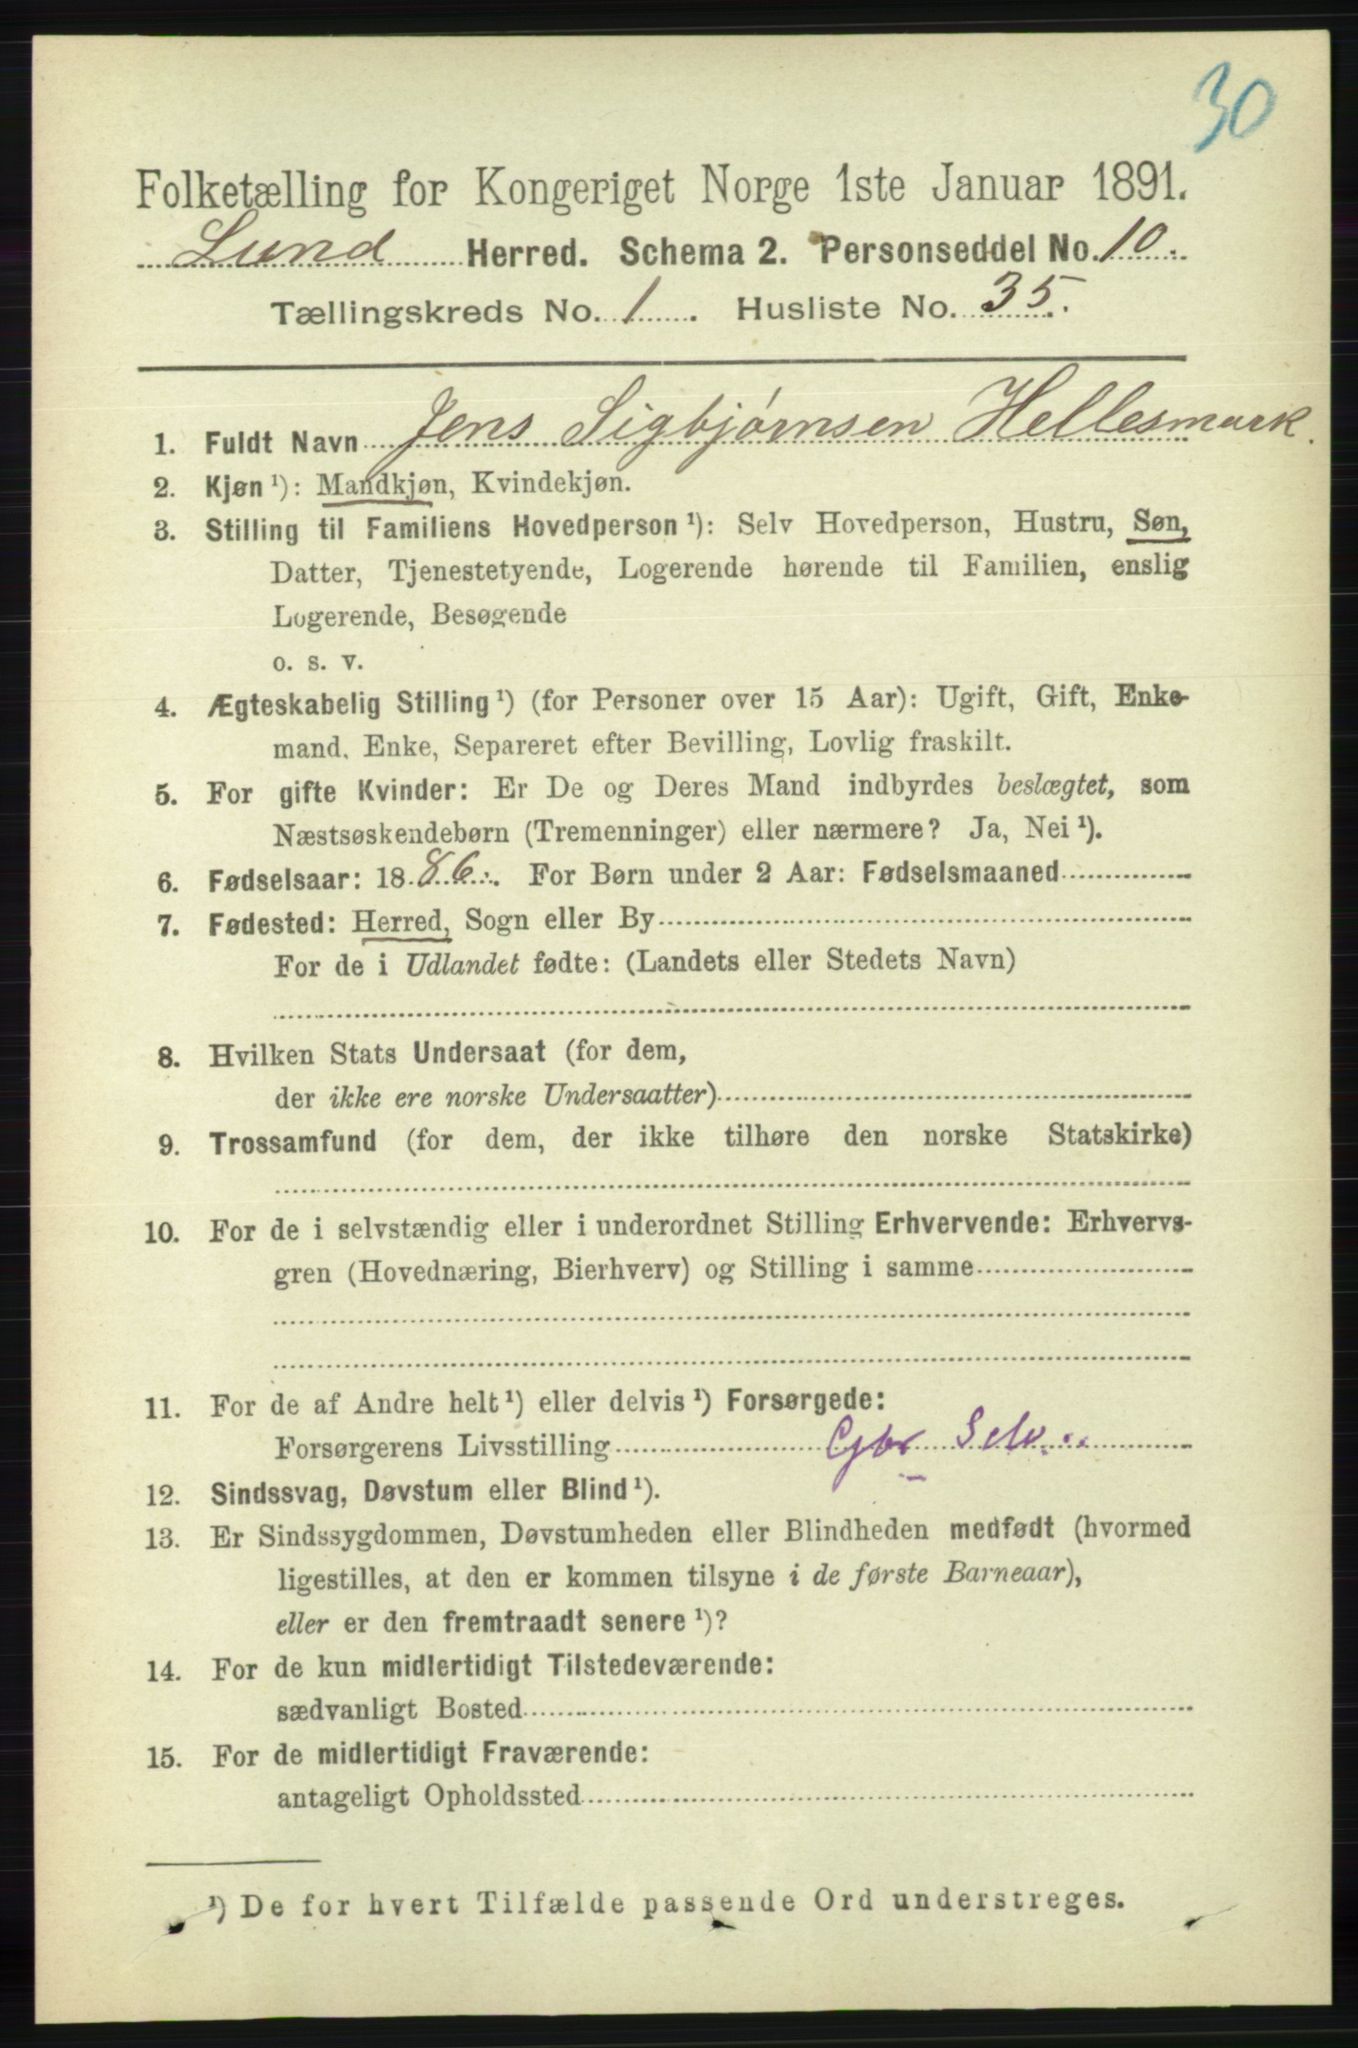 30
Folketælling for Kongeriget Norge 1ste Januar 1891.
Lund Herred. Schema 2. Personseddel No. 10.
Tællingskreds No. 1. Husliste No. 35.
1. Fuldt Navn Jens Sigbjørnsen Hellesmark.
2. Kjøn ¹): Mandkjøn, Kvindekjøn.
3. Stilling til Familiens Hovedperson ¹): Selv Hovedperson, Hustru, Søn,
Datter, Tjenestetyende, Logerende hørende til Familien, enslig
Logerende, Besøgende
o. s. v.
4. Ægteskabelig Stilling ¹) (for Personer over 15 Aar): Ugift, Gift, Enke-
mand, Enke, Separeret efter Bevilling, Lovlig fraskilt.
5. For gifte Kvinder: Er De og Deres Mand indbyrdes beslægtet, som
Næstsøskendebørn (Tremenninger) eller nærmere? Ja, Nei ¹).
6. Fødselsaar: 1886. For Børn under 2 Aar: Fødselsmaaned
7. Fødested: Herred, Sogn eller By
For de i Udlandet fødte: (Landets eller Stedets Navn)
8. Hvilken Stats Undersaat (for dem,
der ikke ere norske Undersaatter)
9. Trossamfund (for dem, der ikke tilhøre den norske Statskirke)
10. For de i selvstændig eller i underordnet Stilling Erhvervende: Erhvervs-
gren (Hovednæring, Bierhverv) og Stilling i samme
11. For de af Andre helt ¹) eller delvis ¹) Forsørgede:
Forsørgerens Livsstilling Gbr Selv.
12. Sindssvag, Døvstum eller Blind ¹).
13. Er Sindssygdommen, Døvstumheden eller Blindheden medfødt (hvormed
ligestilles, at den er kommen tilsyne i de første Barneaar),
eller er den fremtraadt senere ¹)?
14. For de kun midlertidigt Tilstedeværende:
sædvanligt Bosted
15. For de midlertidigt Fraværende:
antageligt Opholdssted
¹) De for hvert Tilfælde passende Ord understreges.